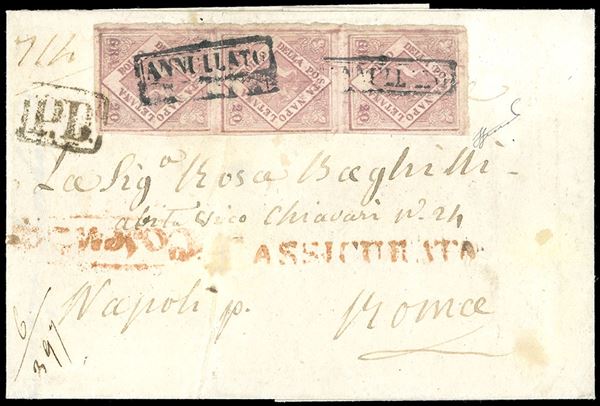 GR 20 BOLLO DELLA POSTA NAPOLETANA GR 20 DELLA POSTA NAPOLETANA GR 20 DELLA POSTA NAPOLETANA
ANNULLATO
P.D.
La Sig.a Rosa Baghilli
abita vico Chiavari n. 24
ASSICURATA
Napoli p. Roma
6/397